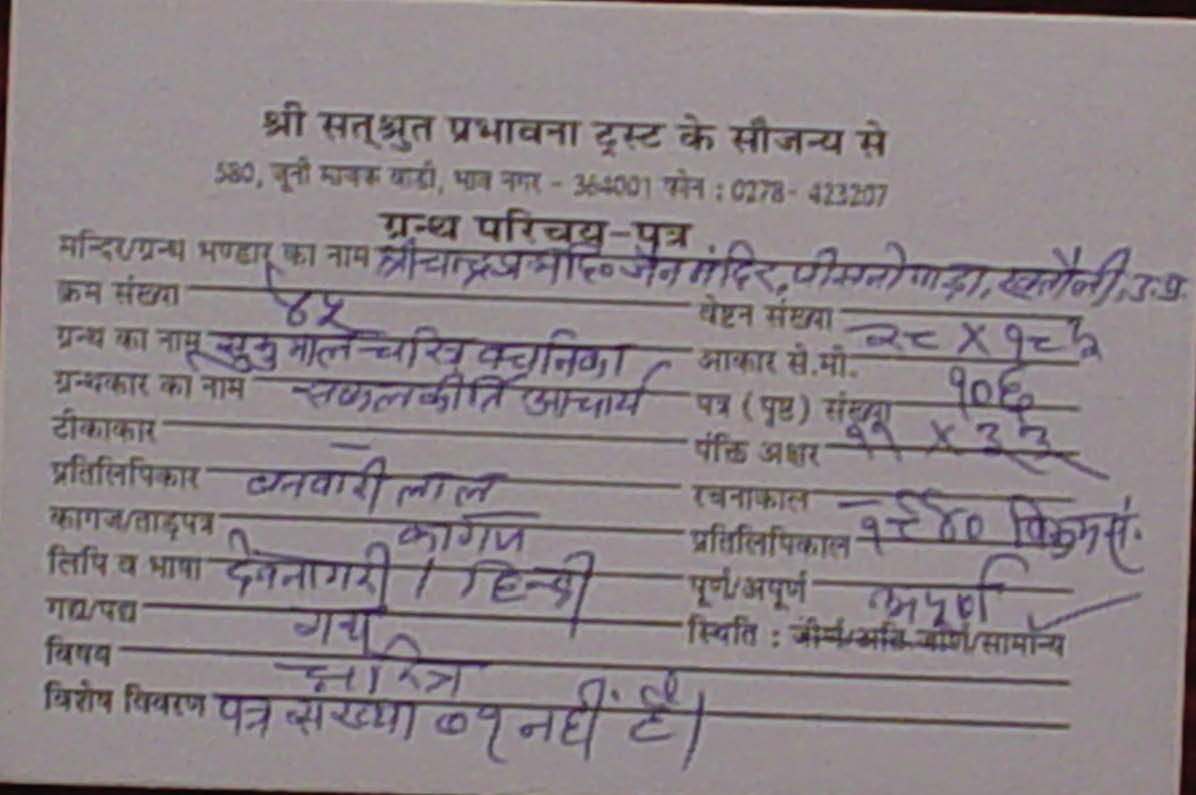 श्री सत्श्रुत प्रभावना ट्रस्ट के सौजन्य से
580, जूनी माणक वाडी, भाव नगर - 364001 फोन : 0278- 423207
ग्रन्थ परिचय-पत्र
मन्दिर/ग्रन्थ भण्डार का नाम श्री चन्द्रप्रभ दि० जैन मंदिर, खतौली, उ.प्र.
क्रम संख्या ४५ वेष्टन संख्या
ग्रन्थ का नाम सुकुमाल चरित्र वचनिका आकार से.मी. २८ X १८
ग्रन्थकार का नाम सकलकीर्ति आचार्य पत्र (पृष्ठ) संख्या १०६
टीकाकार — पंक्ति अक्षर ११ X ३३
प्रतिलिपिकार बनवारी लाल रचनाकाल —
कागज/ताड़पत्र कागज प्रतिलिपिकाल १९४० विक्रम सं.
लिपि व भाषा देवनागरी / हिन्दी पूर्ण/अपूर्ण अपूर्ण
गद्य/पद्य गद्य स्थिति : जीर्ण/अति जीर्ण/सामान्य
विषय चारित्र
विशेष विवरण पत्र संख्या ०१ नहीं है।